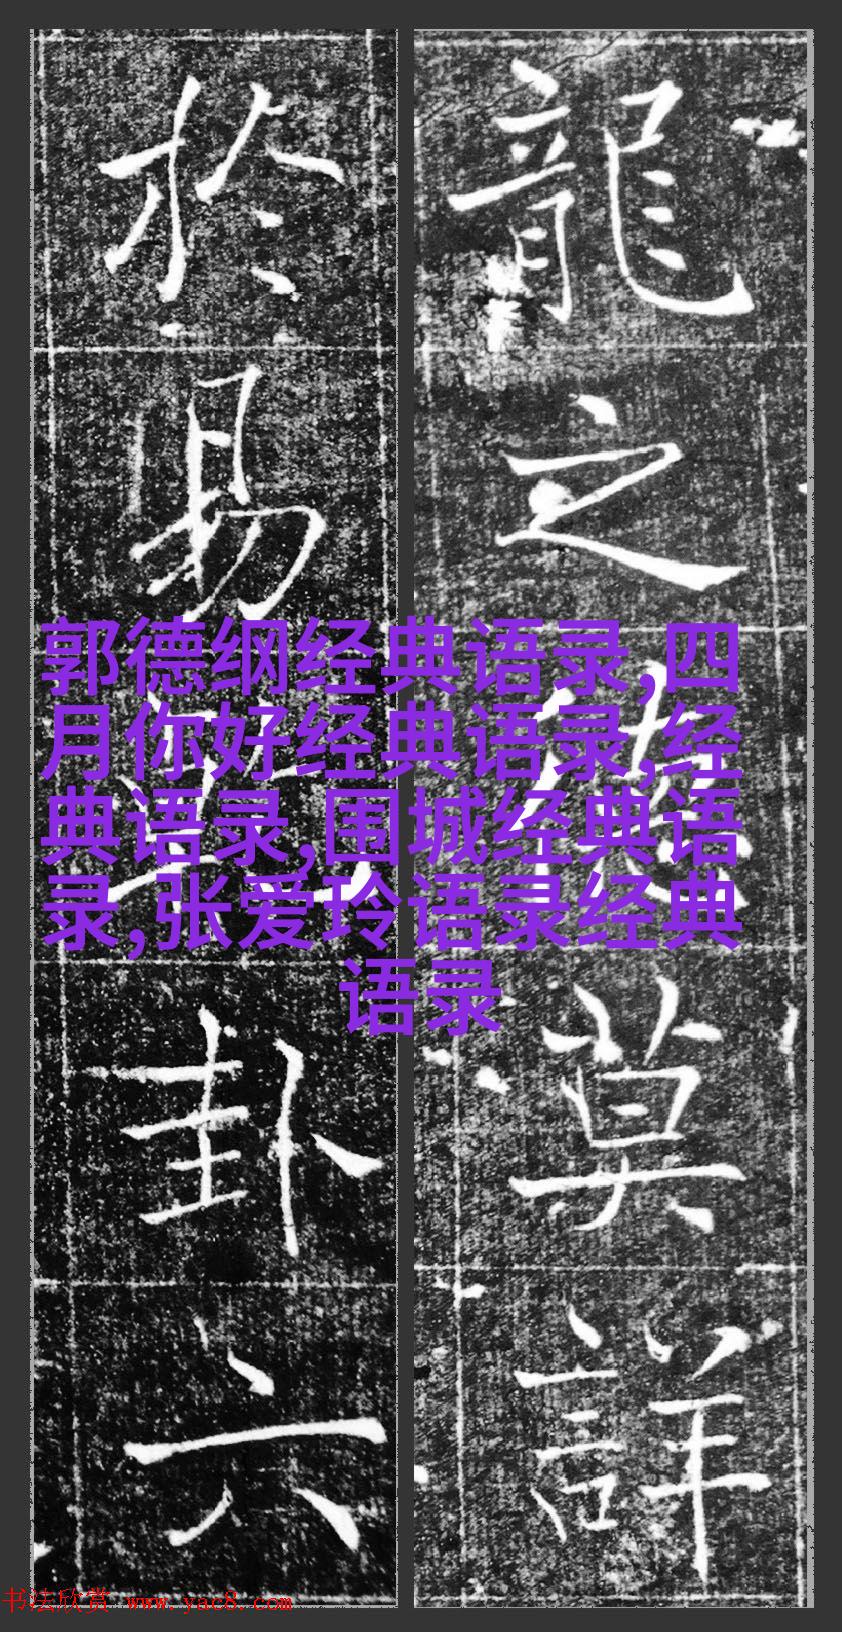 龍之
莫詳
於易
卦六
郭德纲经典语录,四
月你好经典语录,经
典语录,围城经典语
录,张爱玲语录经典
语录
书法欣赏 www.yac8.com